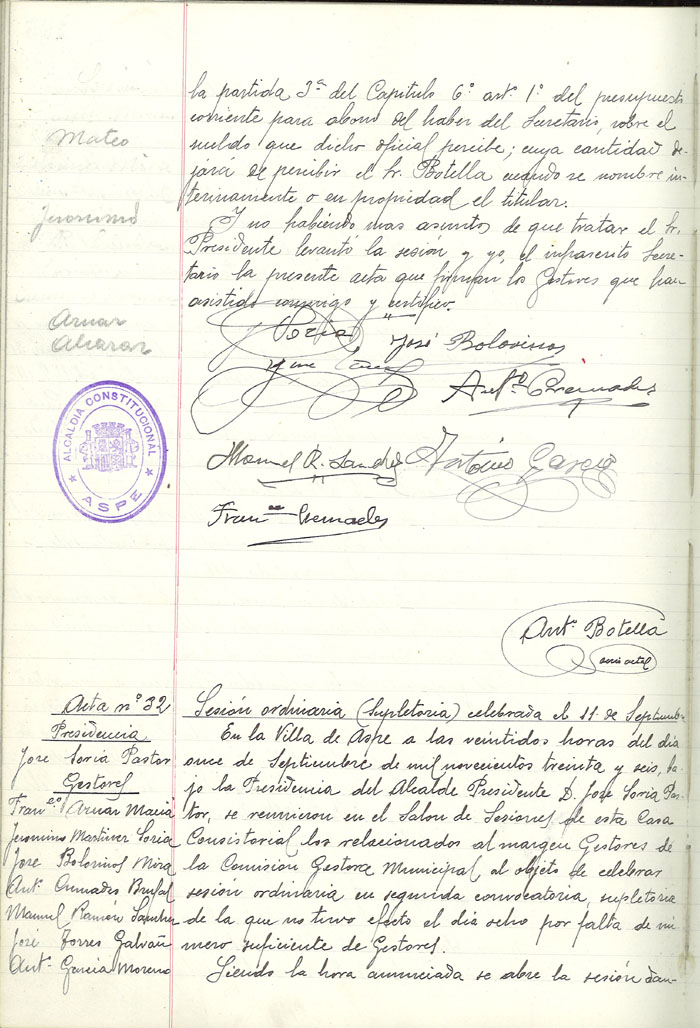 la partida 3ª del Capitulo 6º artº 1º del presupuesto
corriente para abono del haber del Secretario, sobre el
sueldo que dicho oficial percibe; cuya cantidad de-
jará de percibir el Sr. Botella cuando se nombre in-
terinamente o en propiedad el titular.
Y no habiendo mas asuntos de que tratar el Sr.
Presidente levantó la sesión y yo, el infrascrito Secre-
tario la presente acta que firman los Gestores que han
asistido conmigo y certifico.
Mateo
Jeronimo
Aznar
Alcaraz
Soria
José Bolovinos
Antº Cremades
Manuel R. Sanchez
Antonio Garcia
Franco Cremades
ALCALDIA CONSTITUCIONAL
ASPE
Antº Botella
Acta nº 32
Presidencia
Jose Soria Pastor
Gestores
Franco Aznar Maciá
Jeronimo Martinez Soria
Jose Bolovinos Mira
Antº Cremades Brufal
Manuel Ramón Sanchez
José Torres Galvañ
Antº Garcia Moreno
Sesión ordinaria (supletoria) celebrada el 11 de Septiembre
En la Villa de Aspe a las veintidos horas del dia
once de Septiembre de mil novecientos treinta y seis, ba-
jo la Presidencia del Alcalde Presidente D. Jose Soria Pas-
tor, se reunieron en el Salon de Sesiones de esta Casa
Consistorial los relacionados al margen Gestores de
la Comisión Gestora Municipal al objeto de celebrar
sesión ordinaria en segunda convocatoria, supletoria
de la que no tuvo efecto el dia ocho por falta de nú
mero suficiente de Gestores.
Siendo la hora anunciada se abre la sesión dan-